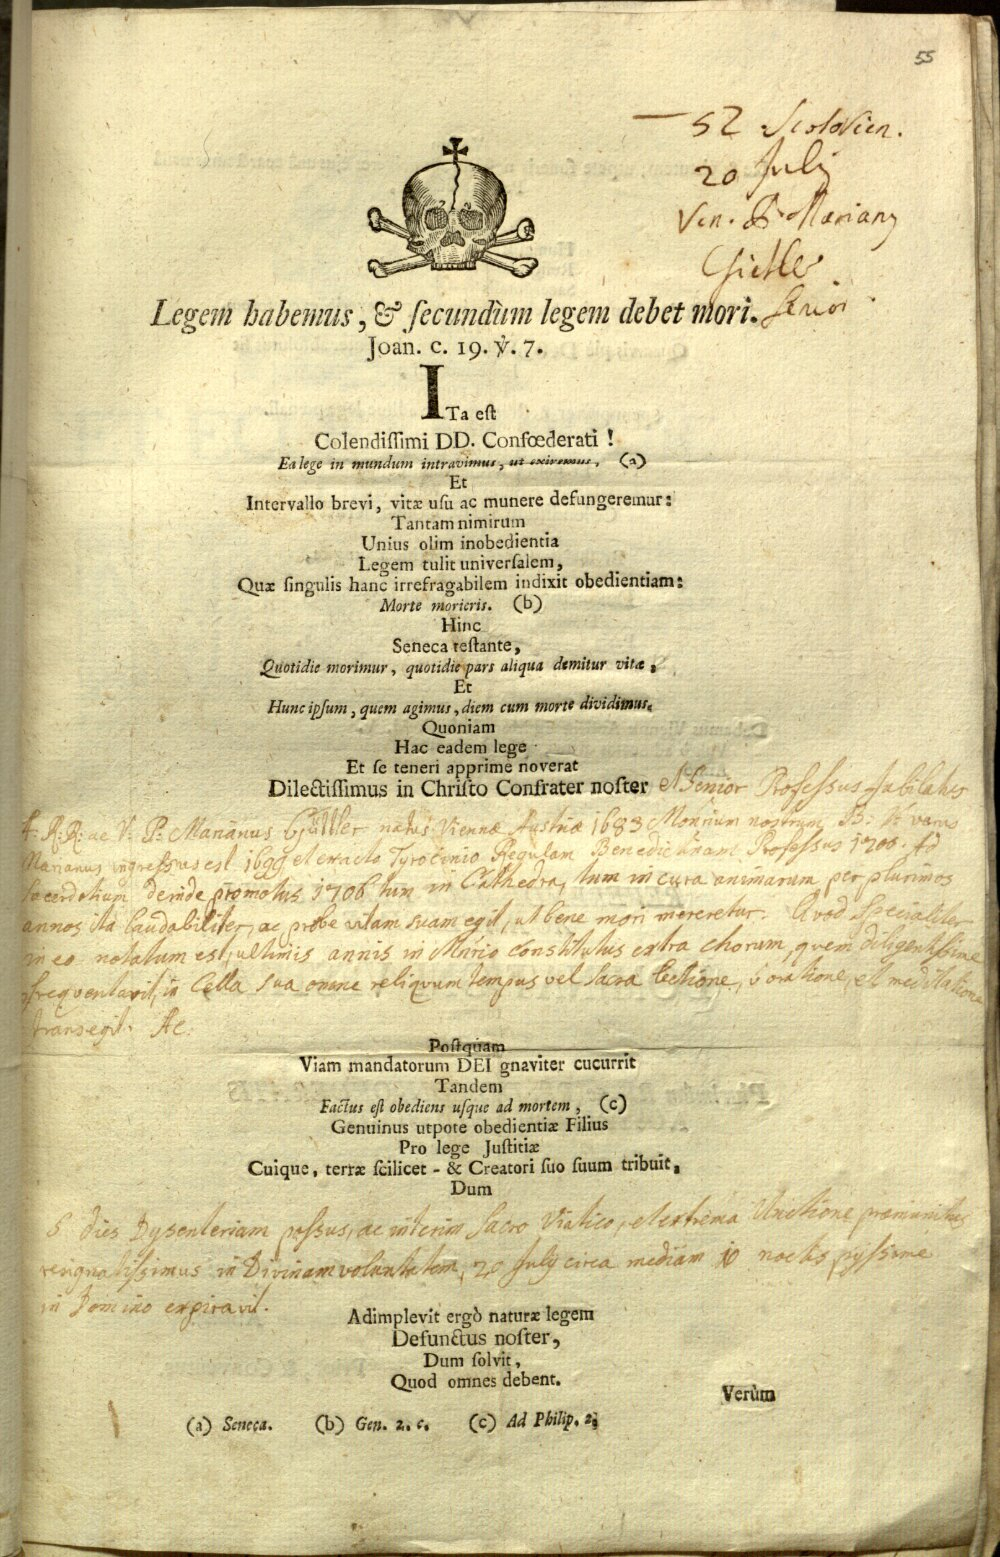 55
52 Scotovien.
20 July
Ven. P. Mariany
Senior
Legem habemus, & ſecundùm legem debet mori.
Joan. c. 19. ℣. 7.
ITa eſt
Colendiſſimi DD. Confœderati !
Ea lege in mundum intravimus, ut exiremus, (a)
Et
Intervallo brevi, vitæ uſu ac munere defungeremur:
Tantam nimirum
Unius olim inobedientia
Legem tulit univerſalem,
Quæ ſingulis hanc irrefragabilem indixit obedientiam:
Morte morieris. (b)
Hinc
Seneca teſtante,
Quotidie morimur, quotidie pars aliqua demitur vitæ,
Et
Hunc ipſum, quem agimus, diem cum morte dividimus.
Quoniam
Hac eadem lege
Et ſe teneri apprime noverat
Dilectiſſimus in Chriſto Confrater noſter Senior Profeſsus Jubilatus
A: R: R: ac V: P: Marianus natus Viennæ Austriæ 1683 nostrum B: V:
Marianus ingreſsus est 1699 et exacto Tyrocinio Regulam Benedictinam Profeſsus 1700. Ad
sacerdotium deinde promotus 1706 tum in Cathedra, tum in cura animarum per plurimos
annos ita laudabiliter, ac probe vitam suam egit, ut bene mori mereretur. Quod Specialiter
in eo notatum est, ultimis annis in constitutus extra chorum, quem diligentiſsime
frequentavit, in Cella sua omne reliquum tempus vel sacra lectione, oratione, et meditatione
transegit. Ac
Poſtquam
Viam mandatorum DEI gnaviter cucurrit
Tandem
Factus eſt obediens uſque ad mortem, (c)
Genuinus utpote obedientiæ Filius
Pro lege Juſtitiæ
Cuique, terræ ſcilicet - & Creatori ſuo ſuum tribuit,
Dum
8 dies Dysenteriam paſsus, ac interim Sacro Viatico, et extrema Unctione præmunitus
resignatiſsimus in Divinam voluntatem, 20 July circa mediam 10 noctis pijſsime
in Domino expiravit.
Adimplevit ergò naturæ legem
Defunctus noſter,
Dum ſolvit,
Quod omnes debent.
Verùm
(a) Seneca. (b) Gen. 2. c. (c) Ad Philip. 2;